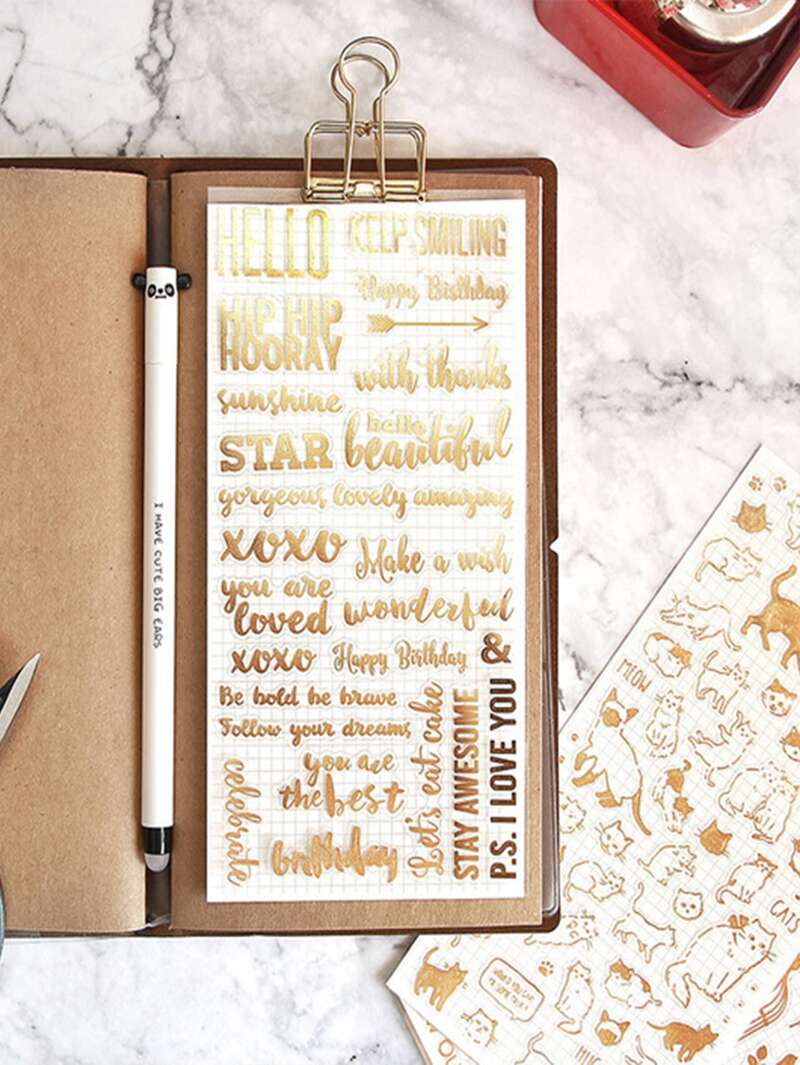 HELLO
KEEP SMILING
Happy Birthday
HIP HIP
HOORAY
with thanks
sunshine
hello
beautiful
STAR
gorgeous, lovely amazing
xoxo
Make a wish
you are
loved
wonderful
xoxo
Happy Birthday
&
Be bold be brave
Follow your dreams
you are
the best
celebrate
birthday
Let's eat cake
STAY AWESOME
P.S. I LOVE YOU
I HAVE CUTE BIG EARS
MEOW
CATS